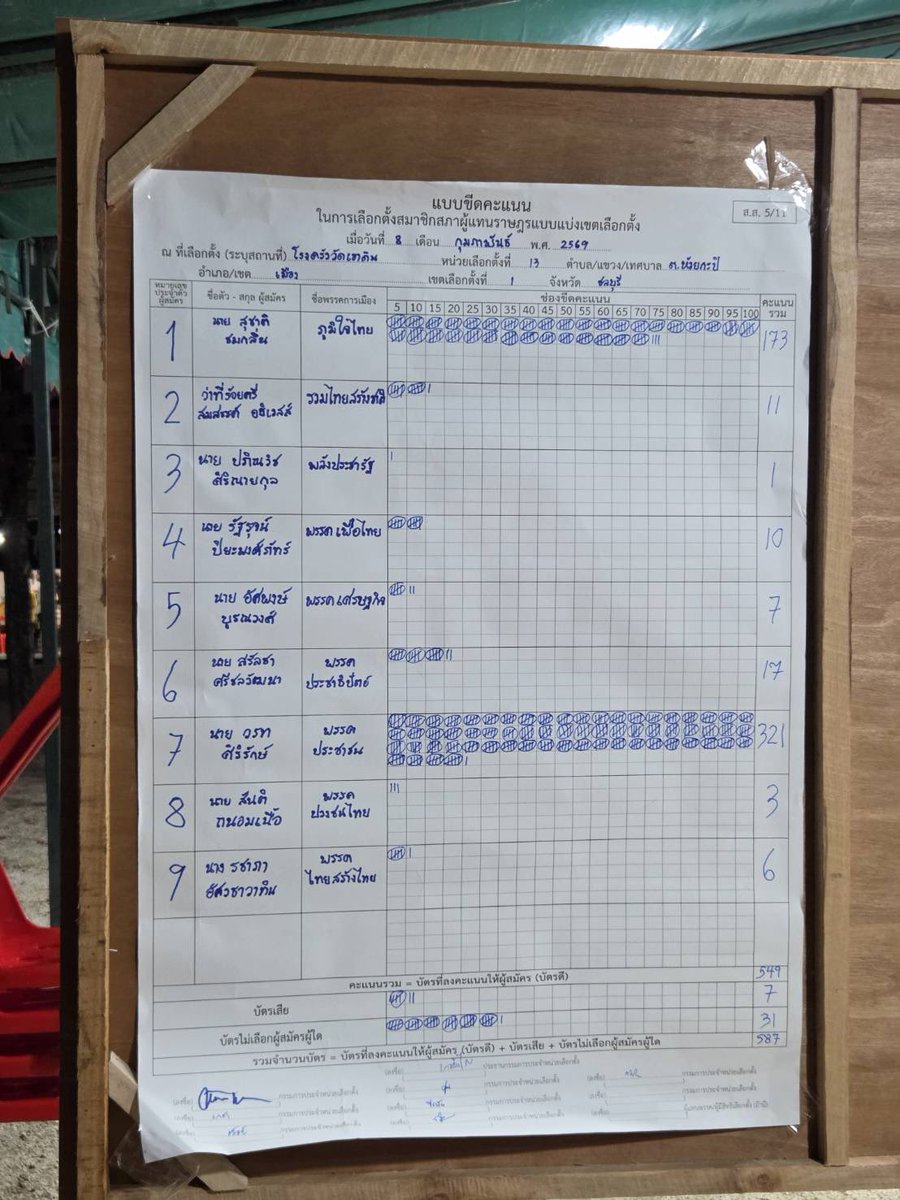 แบบขีดคะแนน
ส.ส. 5/11
ในการเลือกตั้งสมาชิกสภาผู้แทนราษฎรแบบแบ่งเขตเลือกตั้ง
เมื่อวันที่ 8 เดือน กุมภาพันธ์ พ.ศ. 2569
ณ ที่เลือกตั้ง (ระบุสถานที่) โรงครัววัดเขาดิน หน่วยเลือกตั้งที่ 13 ตำบล/แขวง/เทศบาล ต.ห้วยกะปิ
อำเภอ/เขต เมือง เขตเลือกตั้งที่ 1 จังหวัด ชลบุรี
หมายเลขประจำตัวผู้สมัคร ชื่อตัว - สกุล ผู้สมัคร ชื่อพรรคการเมือง ช่องขีดคะแนน คะแนนรวม
5 10 15 20 25 30 35 40 45 50 55 60 65 70 75 80 85 90 95 100
1 นาย สุชาติ ชมกลิ่น ภูมิใจไทย 173
2 ว่าที่ร้อยตรี รวมไทยสร้างชาติ 11
3 นาย ศิรินายกุล พลังประชารัฐ 1
4 นาย พรรค เพื่อไทย 10
5 นาย อัศพงษ์ บูรณวงศ์ พรรค เศรษฐกิจ 7
6 นาย ศรีชลวัฒนา พรรค ประชาธิปัตย์ 17
7 นาย วรท ศิริรักษ์ พรรค ประชาชน 321
8 นาย สันติ ถนอมเนื้อ พรรค ปวงชนไทย 3
9 นาง รชาภา อัศวชาวาทิน พรรค ไทยสร้างไทย 6
คะแนนรวม = บัตรที่ลงคะแนนให้ผู้สมัคร (บัตรดี) 549
บัตรเสีย 7
บัตรไม่เลือกผู้สมัครผู้ใด 31
รวมจำนวนบัตร = บัตรที่ลงคะแนนให้ผู้สมัคร (บัตรดี) + บัตรเสีย + บัตรไม่เลือกผู้สมัครผู้ใด 587
(ลงชื่อ) ประธานกรรมการประจำหน่วยเลือกตั้ง
(ลงชื่อ) กรรมการประจำหน่วยเลือกตั้ง (ลงชื่อ) กรรมการประจำหน่วยเลือกตั้ง (ลงชื่อ) กรรมการประจำหน่วยเลือกตั้ง
(ลงชื่อ) กรรมการประจำหน่วยเลือกตั้ง (ลงชื่อ) กรรมการประจำหน่วยเลือกตั้ง (ลงชื่อ)
(ลงชื่อ) กรรมการประจำหน่วยเลือกตั้ง (ลงชื่อ) กรรมการประจำหน่วยเลือกตั้ง